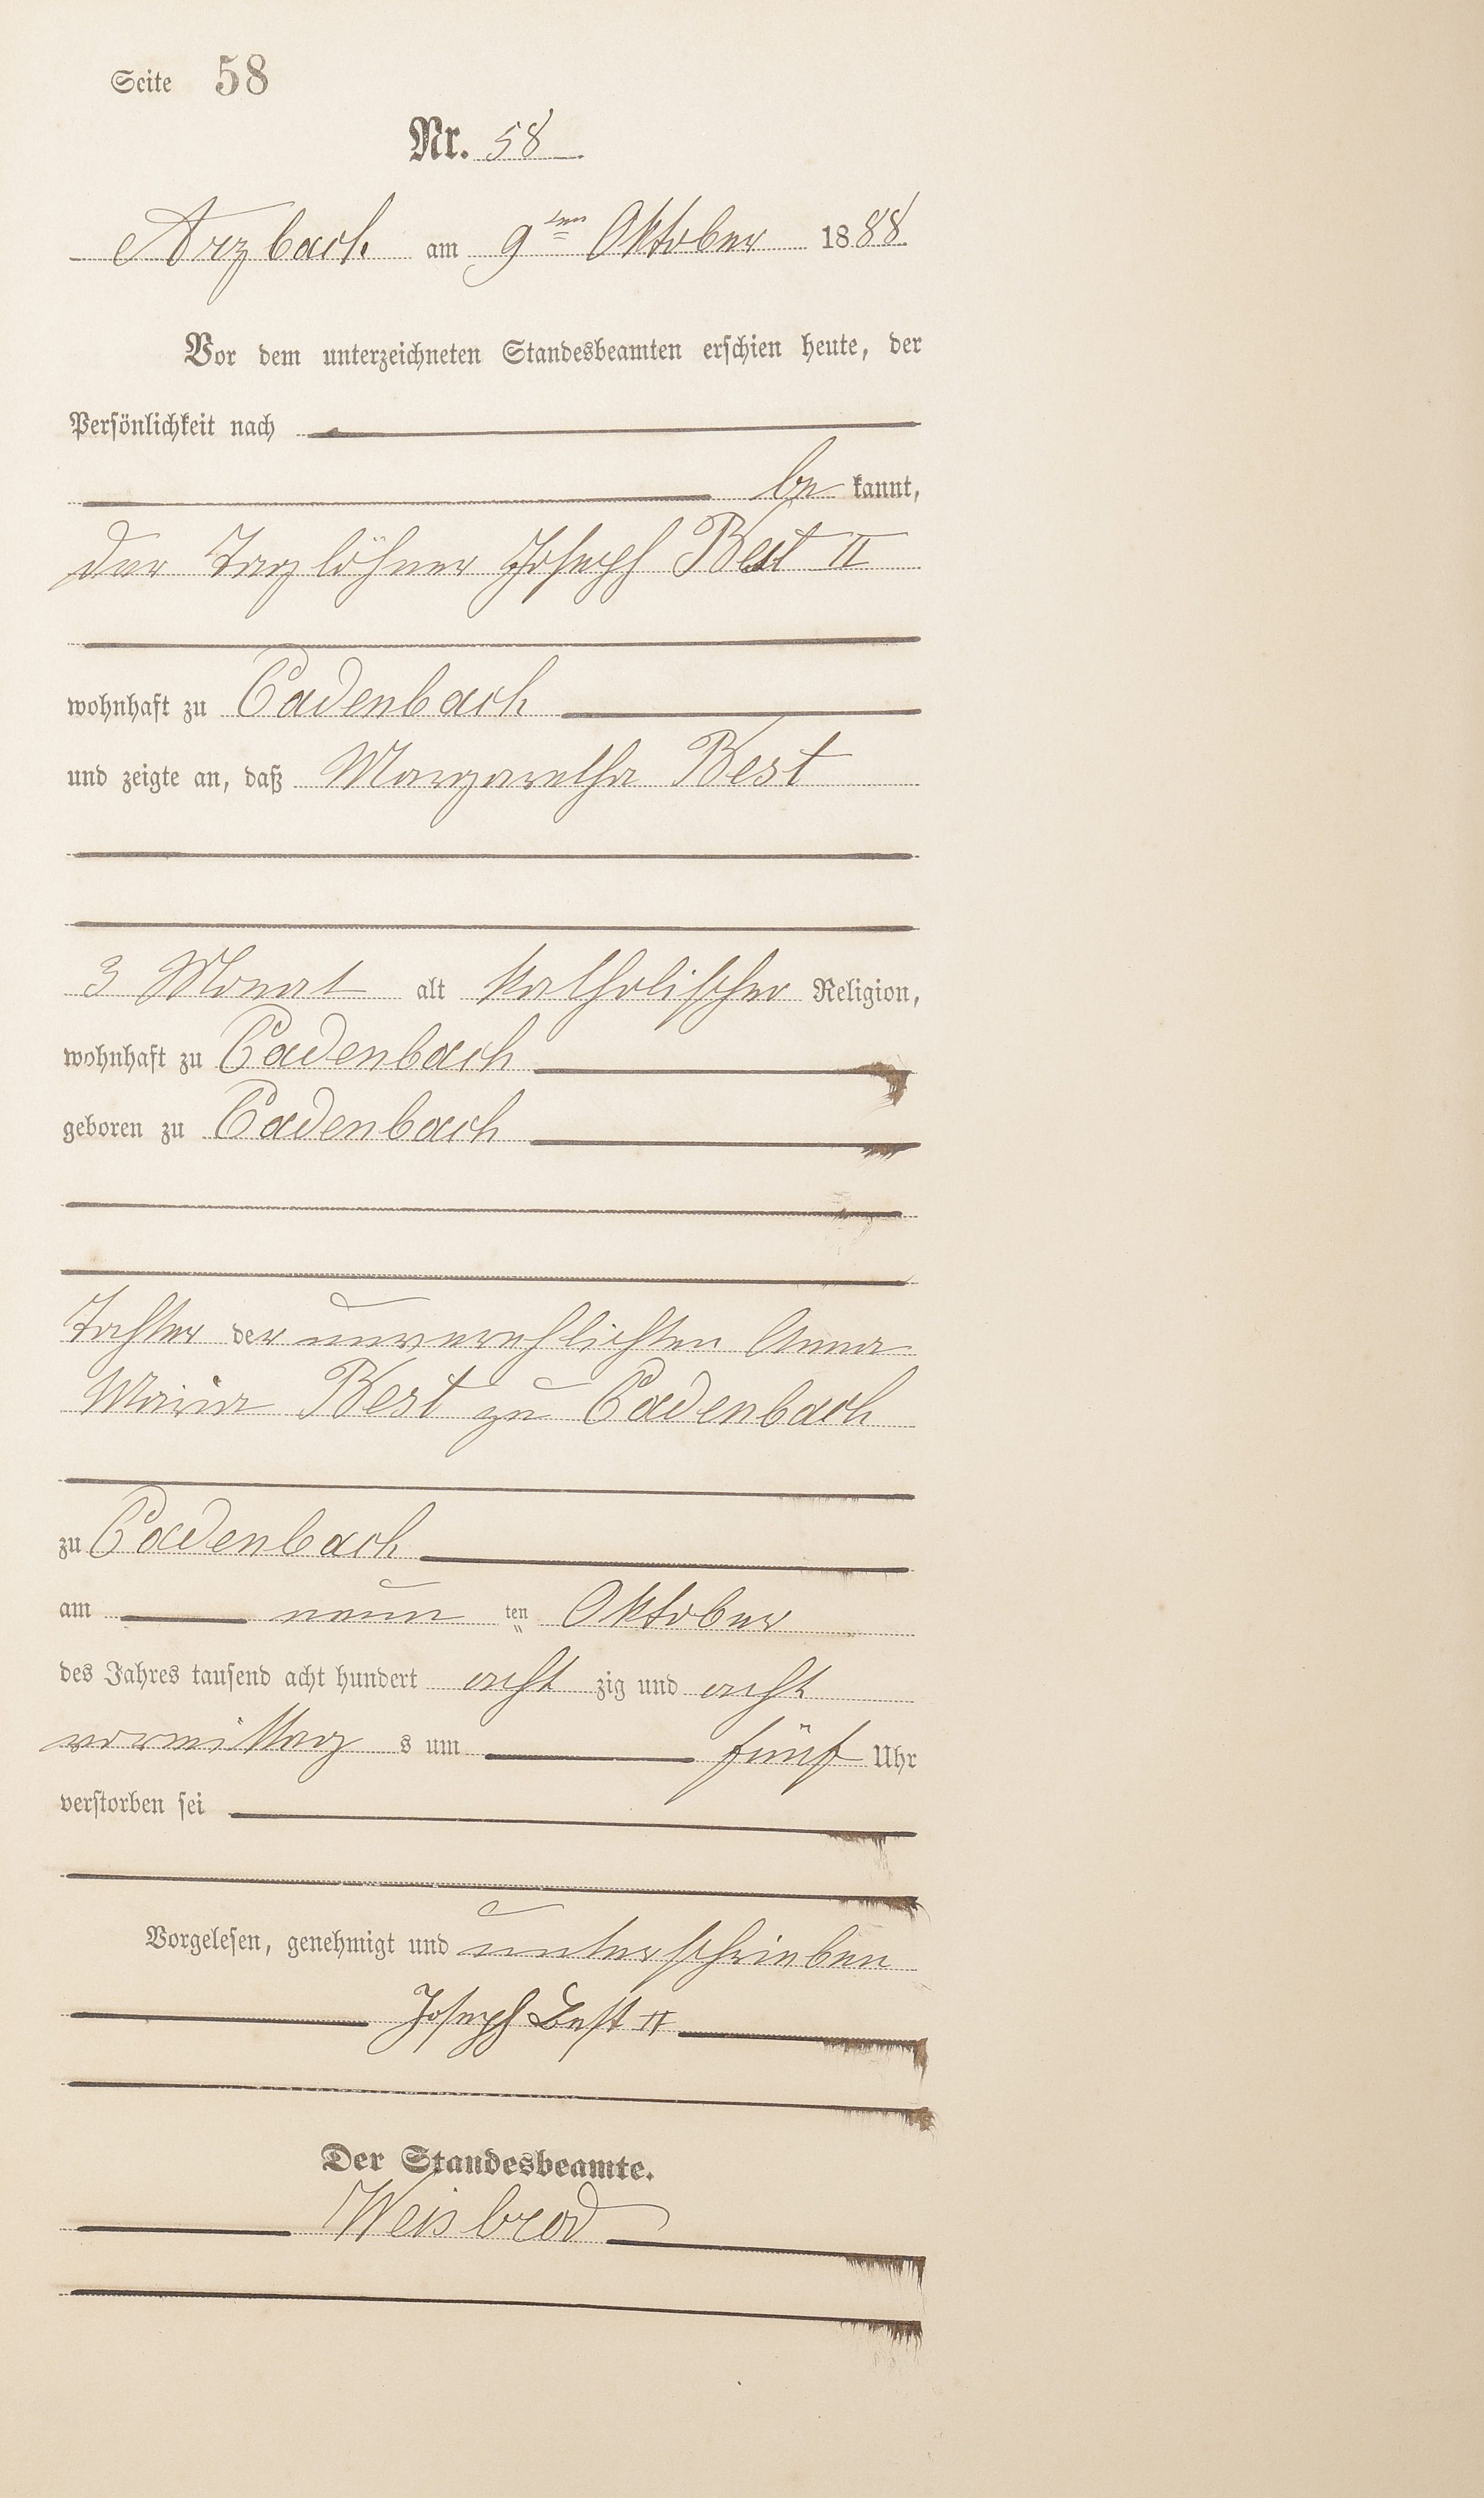 Seite 58
Nr. 58
Arzbach am 9ten Oktober 1888
Vor dem unterzeichneten Standesbeamten erschien heute, der
Persönlichkeit nach
bekannt,
der Taglöhner Joseph Best II
wohnhaft zu Cadenbach
und zeigte an, daß Margaretha Best
3 Monat alt katholischer Religion,
wohnhaft zu Cadenbach
geboren zu Cadenbach
Tochter der unverehlichten Anna
Maria Best zu Cadenbach
zu Cadenbach
am neun ten Oktober
des Jahres tausend acht hundert acht zig und acht
vormittag s um fünf Uhr
verstorben sei
Vorgelesen, genehmigt und unterschrieben
Joseph Best II
Der Standesbeamte.
Weisbrod